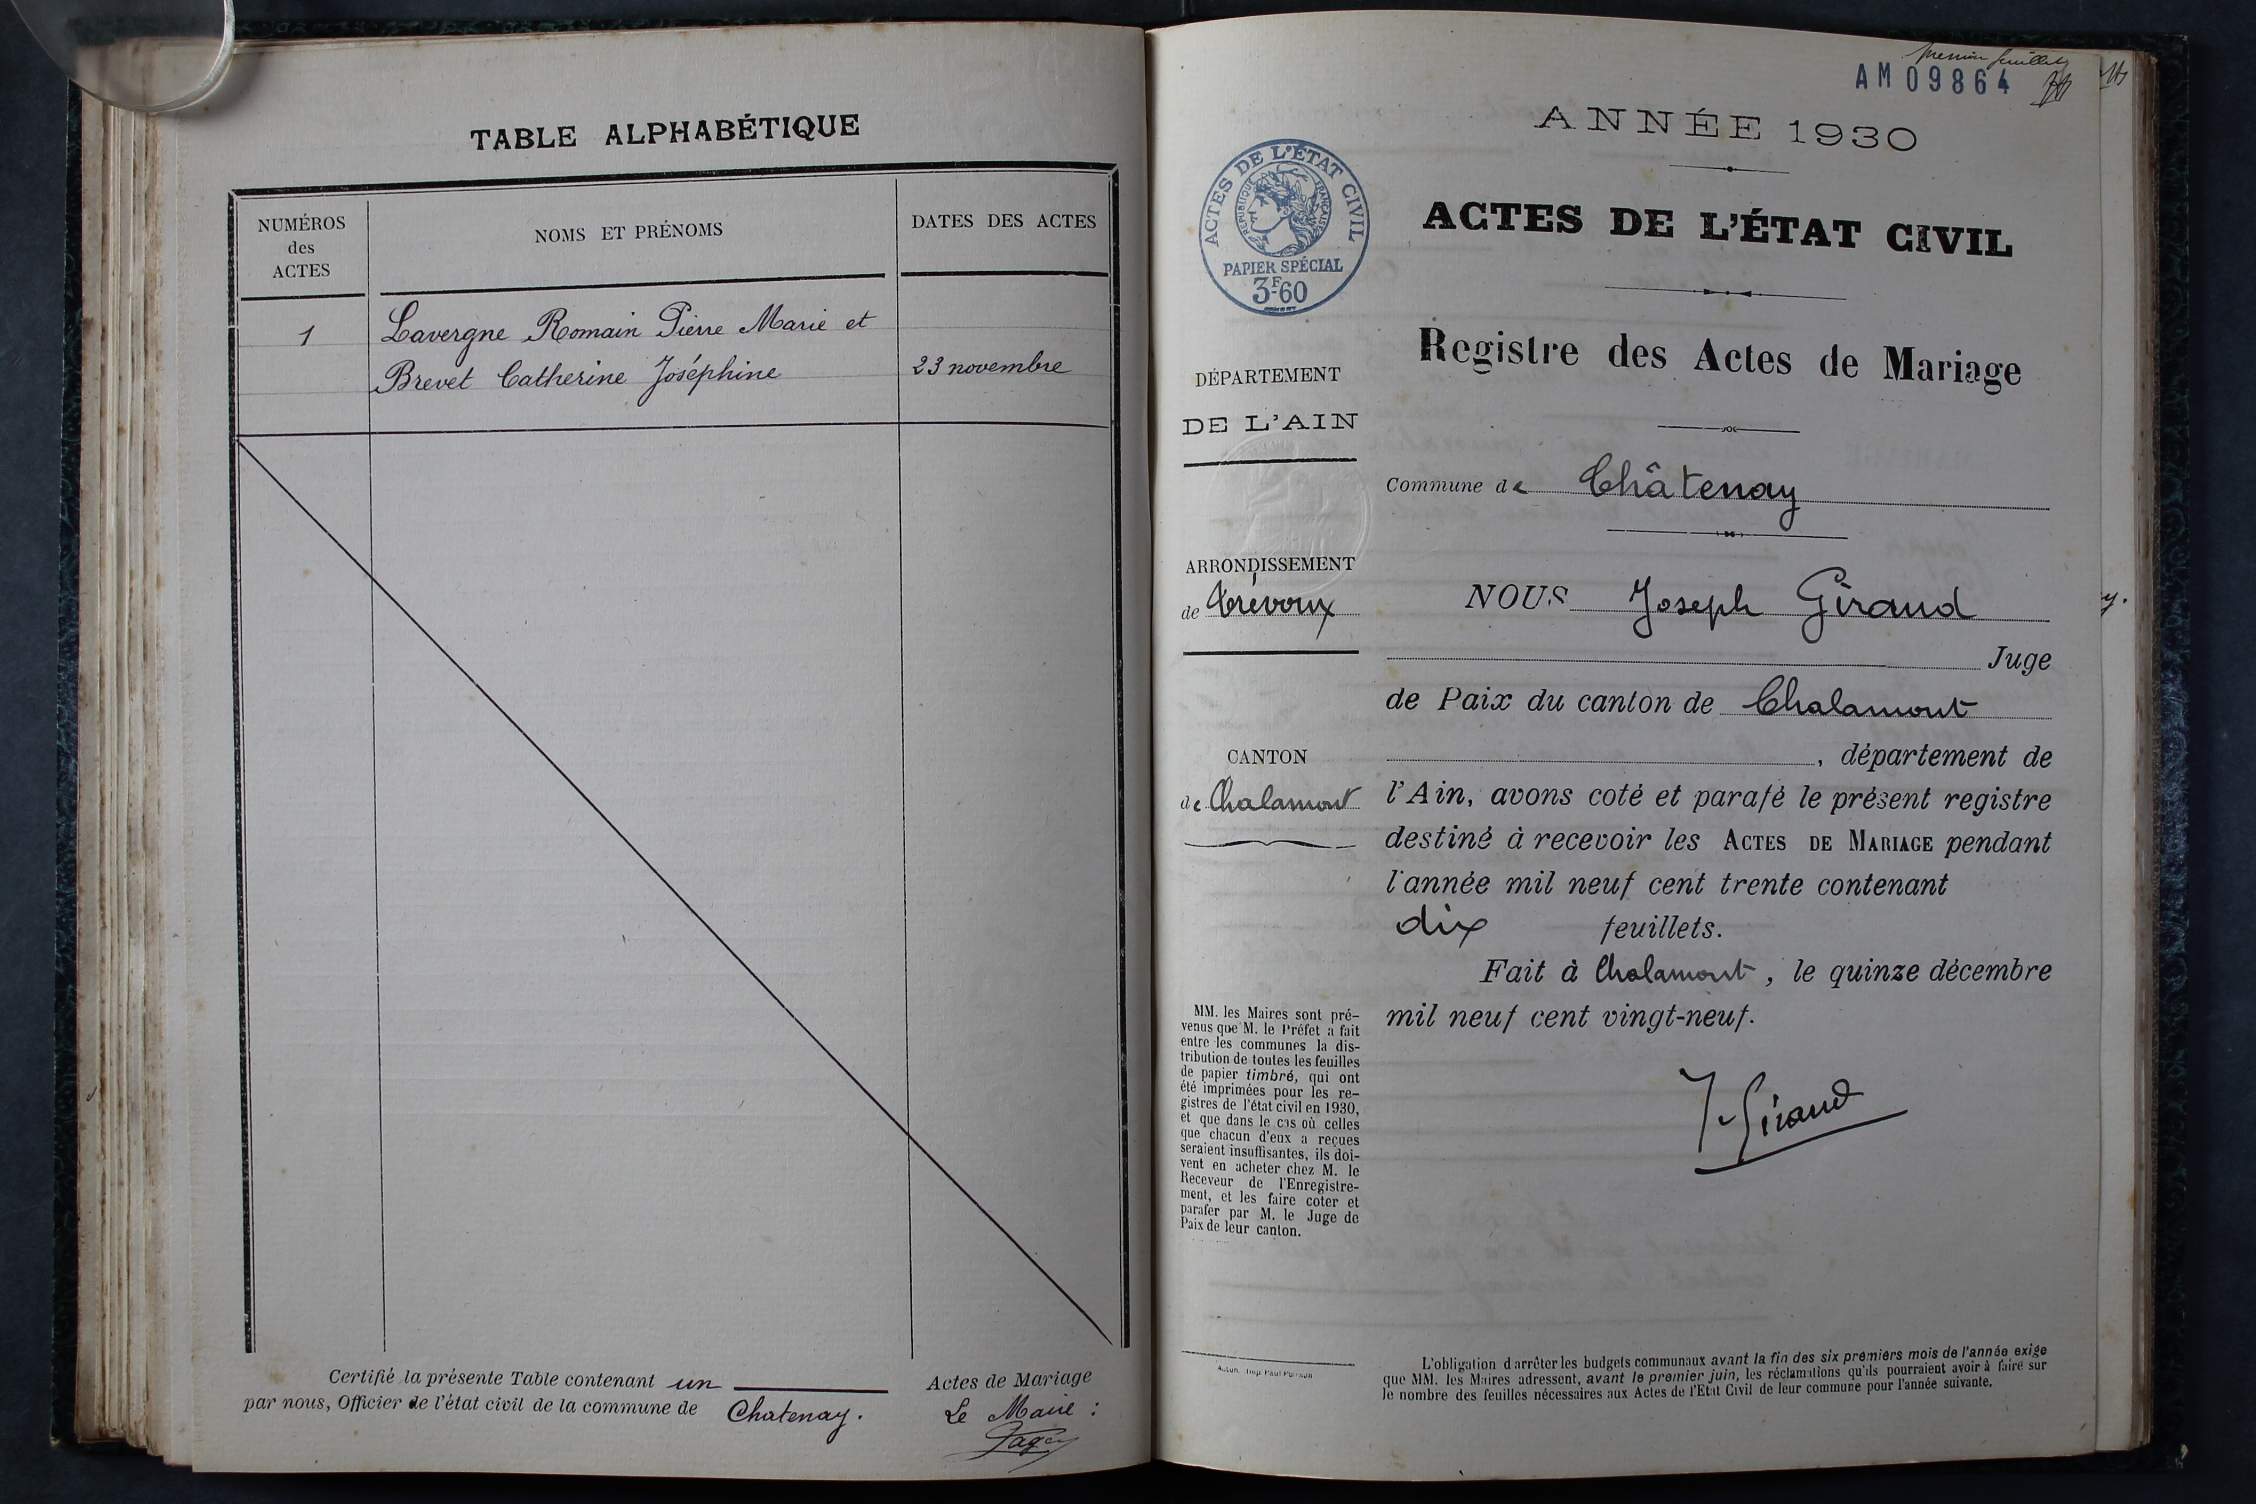 TABLE ALPHABÉTIQUE
NUMÉROS
des
ACTES
NOMS ET PRÉNOMS
DATES DES ACTES
1
Lavergne Romain Pierre Marie et
Brevet Catherine Joséphine
23 novembre
Certifié la présente Table contenant un
Actes de Mariage
par nous, Officier de l'état civil de la commune de Chatenay.
Le Maire :
premier feuillet
AM 09864
ANNÉE 1930
ACTES DE L'ÉTAT CIVIL
RÉPUBLIQUE FRANÇAISE
PAPIER SPÉCIAL
3F60
ACTES DE L'ÉTAT CIVIL
Registre des Actes de Mariage
DÉPARTEMENT
DE L'AIN
Commune de Châtenay
ARRONDISSEMENT
de Trévoux
NOUS Joseph Giraud
Juge
de Paix du canton de Chalamont
CANTON
de Chalamont
, département de
l'Ain, avons coté et parafé le présent registre
destiné à recevoir les ACTES DE MARIAGE pendant
l'année mil neuf cent trente contenant
dix feuillets.
Fait à Chalamont, le quinze décembre
mil neuf cent vingt-neuf.
J. Giraud
MM. les Maires sont pré-
venus que M. le Préfet a fait
entre les communes la dis-
tribution de toutes les feuilles
de papier timbré, qui ont
été imprimées pour les re-
gistres de l'état civil en 1930,
et que dans le cas où celles
que chacun d'eux a reçues
seraient insuffisantes, ils doi-
vent en acheter chez M. le
Receveur de l'Enregistre-
ment, et les faire coter et
parafer par M. le Juge de
Paix de leur canton.
Autun. Imp. Paul
L'obligation d'arrêter les budgets communaux avant la fin des six premiers mois de l'année exige
que MM. les Maires adressent, avant le premier juin, les réclamations qu'ils pourraient avoir à faire sur
le nombre des feuilles nécessaires aux Actes de l'Etat Civil de leur commune pour l'année suivante.